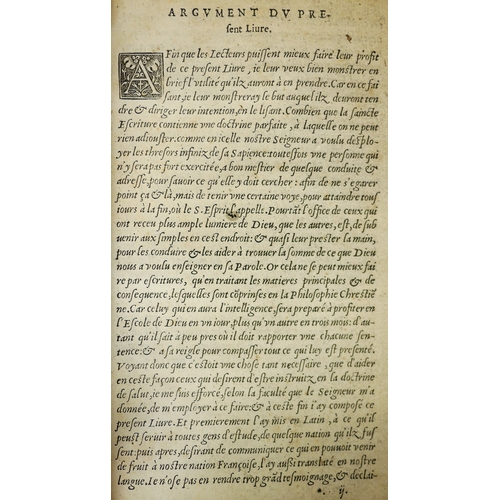 ARGVMENT DV PRE-
sent Liure.
AFin que les Lecteurs puissent mieux faire leur profit
de ce present Liure, ie leur veux bien monstrer en
brief l'vtilité qu'ilz auront à en prendre. Car en ce fai
sant, ie leur monstreray le but auquel ilz deuront ten
dre & diriger leur intention, en le lisant. Combien que la saincte
Escriture contienne vne doctrine parfaite, à laquelle on ne peut
rien adiouster: comme en icelle nostre Seigneur a voulu desplo-
yer les thresors infiniz de sa Sapience: toutesfois vne personne qui
n'y sera pas fort exercitée, a bon mestier de quelque conduite &
adresse, pour sauoir ce qu'elle y doit cercher: à fin de ne s'egarer
point çà & là, mais de tenir vne certaine voye, pour attaindre tous
iours à la fin, où le S. Esprit l'appelle. Pourtāt l'office de ceux qui
ont receu plus ample lumiere de Dieu, que les autres, est, de sub
uenir aux simples en cest endroit: & quasi leur prester la main,
pour les conduire & les aider à trouuer la somme de ce que Dieu
nous a voulu enseigner en sa Parole. Or cela ne se peut mieux fai
re par escritures, qu'en traitant les matieres principales & de
consequence, lesquelles sont cōprinses en la Philosophie Chrestiē
ne. Car celuy qui en aura l'intelligence, sera preparé à profiter en
l'Escole de Dieu en vn iour, plus qu'vn autre en trois mois: d'au-
tant qu'il sait à peu pres où il doit rapporter vne chacune sen-
tence: & a sa reigle pour compasser tout ce qui luy est presenté.
Voyant donc que c'estoit vne chose tant necessaire, que d'aider
en ceste façon ceux qui desirent d'estre instruitz en la doctrine
de salut, ie me suis efforcé, selon la faculté que le Seigneur m'a
donnée, de m'employer à ce faire: & à ceste fin i'ay composé ce
present Liure. Et premierement l'ay mis en Latin, à ce qu'il
peust seruir à toutes gens d'estude, de quelque nation qu'ilz fus
sent: puis apres, desirant de communiquer ce qui en pouuoit venir
de fruit à nostre nation Françoise, l'ay aussi translaté en nostre
langue. Ie n'ose pas en rendre trop grād tesmoignage, & declai-
*. ij.